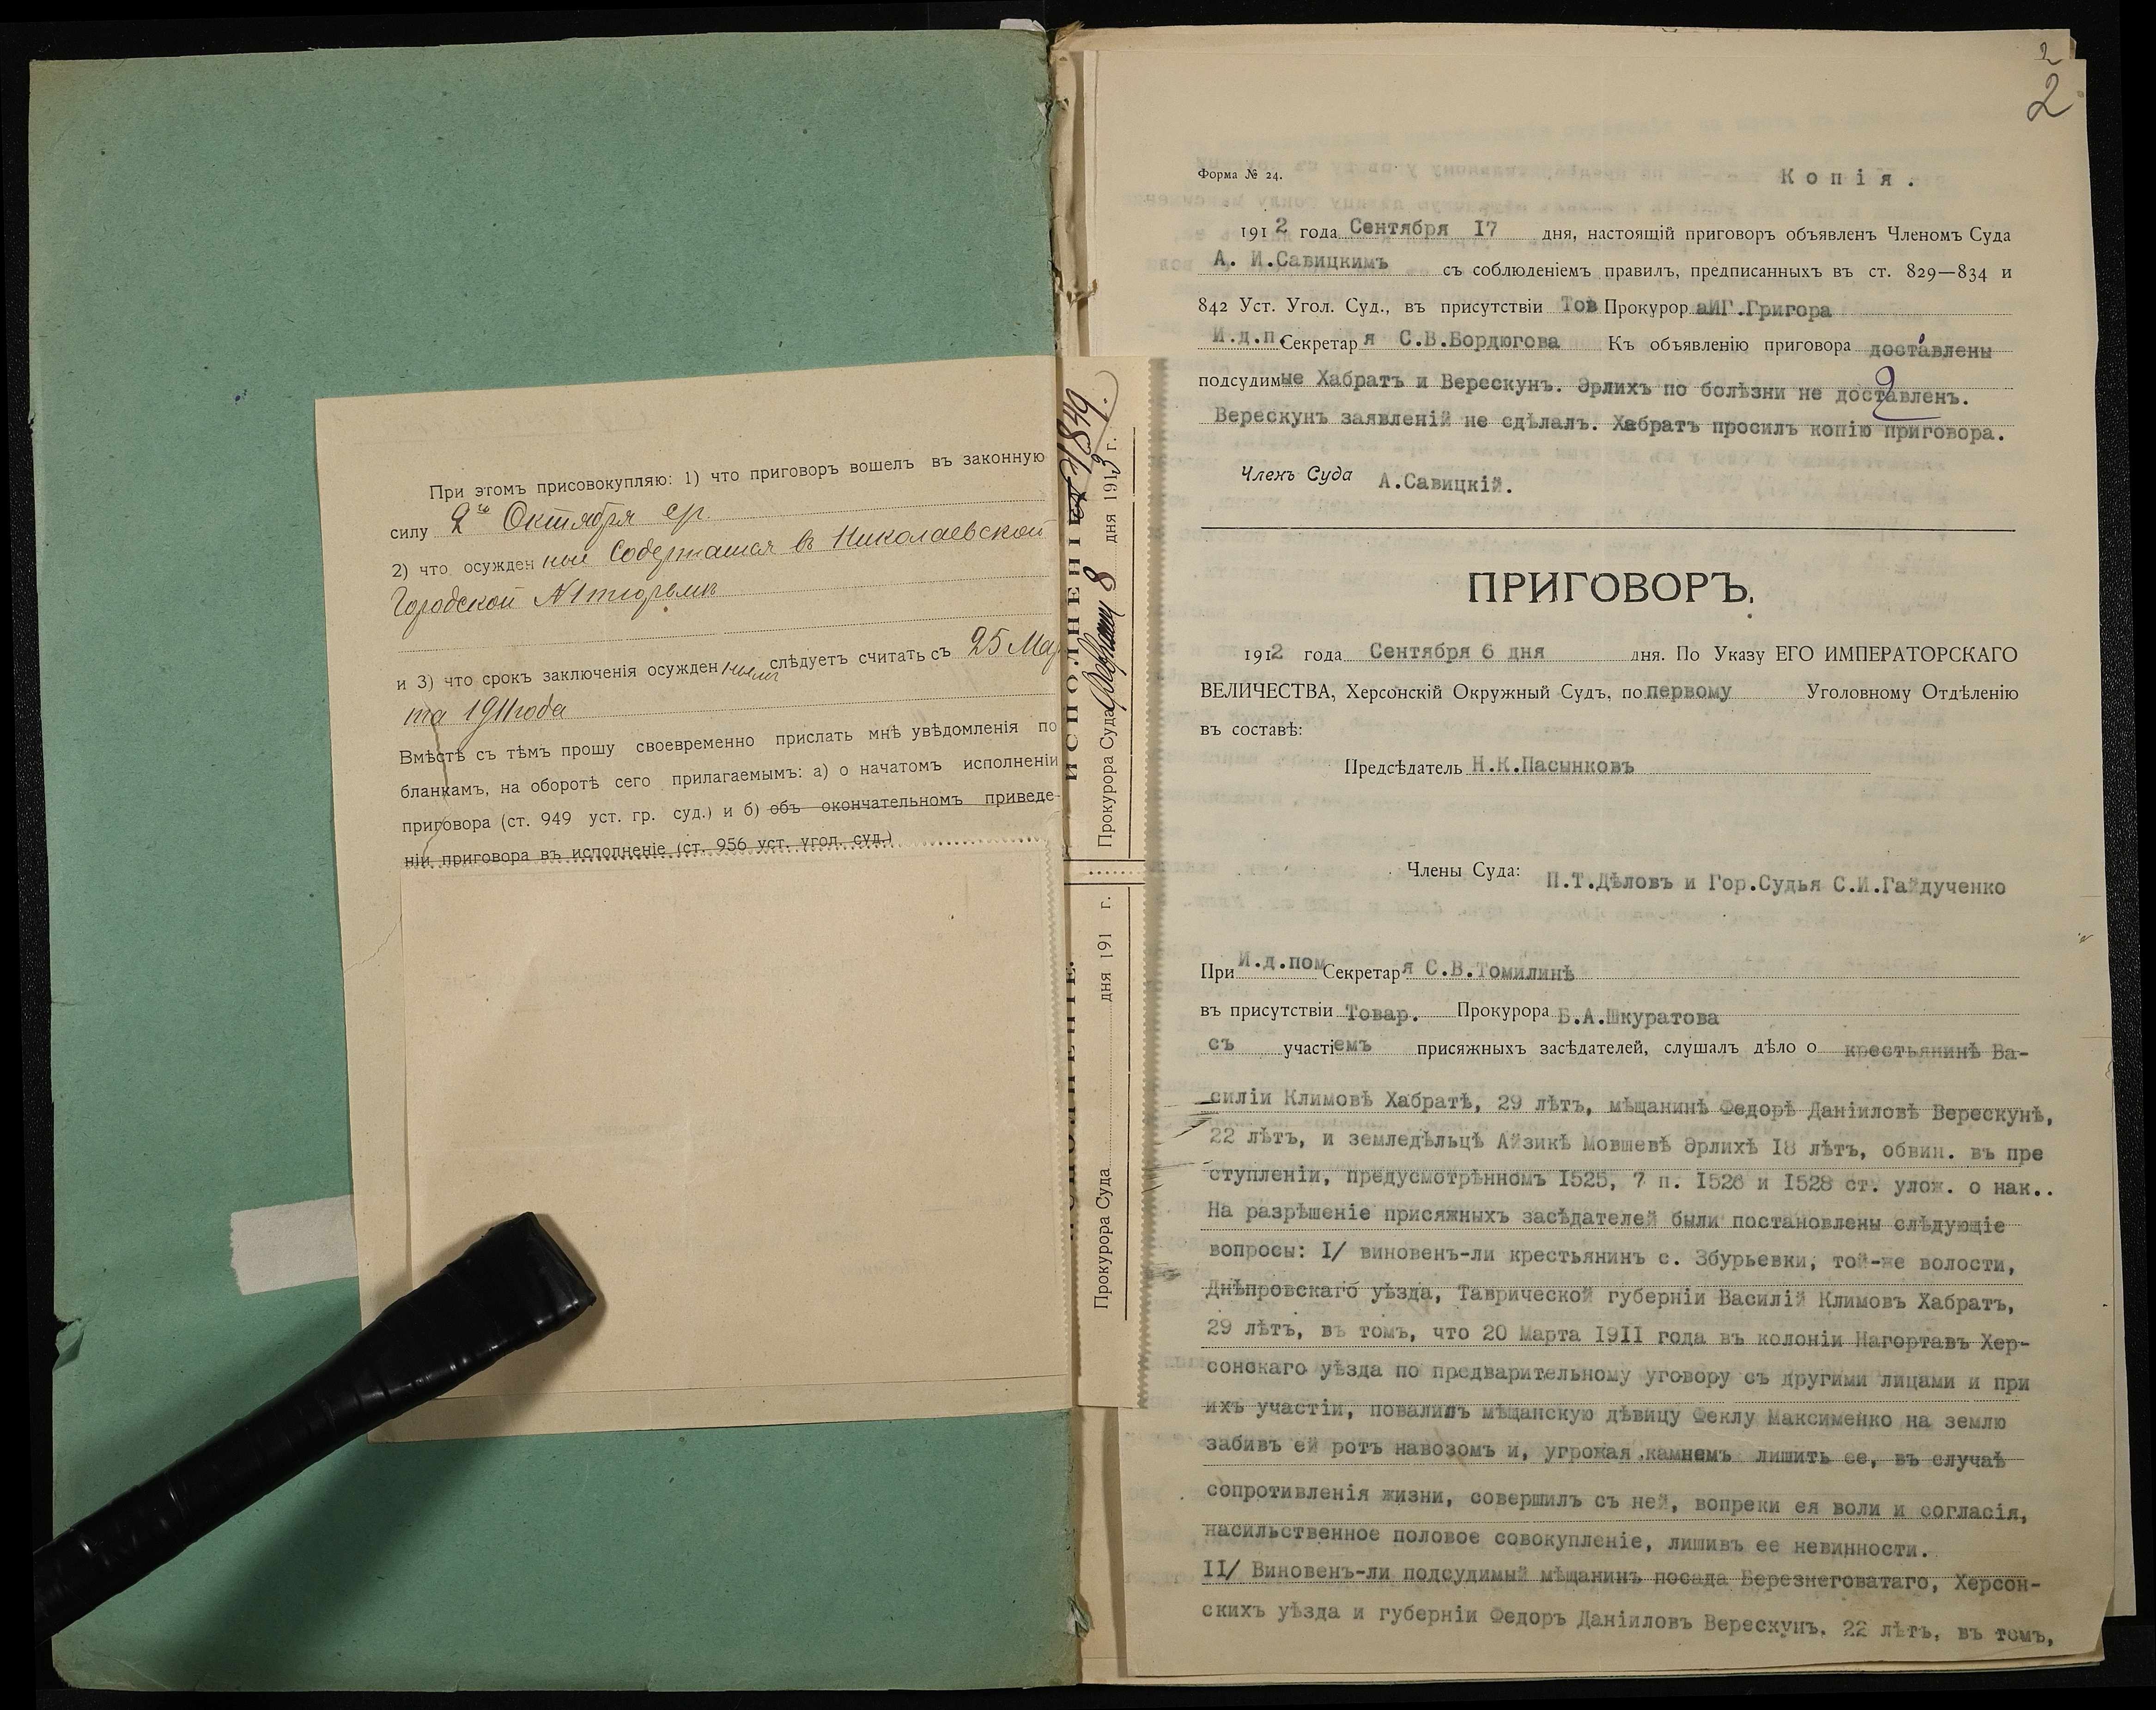 При этомъ присовокупляю: 1) что приговоръ вошелъ въ законную
силу 2го Октября с/г.
2) что осужденные содержатся въ Николаевской
Городской №1 тюрьмѣ
и 3) что срокъ заключенія осужденнымъ слѣдуетъ считать съ 25 Мар
та 1911 года
Вмѣстѣ съ тѣмъ прошу своевременно прислать мнѣ увѣдомленія по
бланкамъ, на оборотѣ сего прилагаемымъ: а) о начатомъ исполненіи
приговора (ст. 949 уст. гр. суд.) и б) объ окончательномъ приведе-
ніи приговора въ исполненіе (ст. 956 уст. угол. суд.)
ИСПОЛНЕНІЕ
1849.
Прокурора Суда 8 дня 1913 г.
Прокурора Суда дня 191 г.
2
2
Форма № 24.
Копія.
1912 года Сентября 17 дня, настоящій приговоръ объявленъ Членомъ Суда
А. И.Савицкимъ съ соблюденіемъ правилъ, предписанныхъ въ ст. 829—834 и
842 Уст. Угол. Суд., въ присутствіи Тов Прокурора ИГ.Григора
И.д.п.Секретаря С.В.Бордюгова Къ объявленію приговора доставлены
подсудимые Хабратъ и Верескунъ. Эрлихъ по болѣзни не доставленъ.
Верескунъ заявленій не сдѣлалъ. Хабратъ просилъ копію приговора.
Членъ Суда А.Савицкій.
ПРИГОВОРЪ.
1912 года Сентября 6 дня дня. По Указу ЕГО ИМПЕРАТОРСКАГО
ВЕЛИЧЕСТВА, Херсонскій Окружный Судъ, по первому Уголовному Отдѣленію
въ составѣ:
Предсѣдатель Н.К.Пасынковъ
Члены Суда: П.Т.Дѣловъ и Гор.Судья С.И.Гайдученко
При И.д.пом Секретаря С.В.Томилинѣ
въ присутствіи Товар. Прокурора Б.А.Шкуратова
съ участіемъ присяжныхъ засѣдателей, слушалъ дѣло о крестьянинѣ Ва-
силіи Климовѣ Хабратѣ, 29 лѣтъ, мѣщанинѣ Федорѣ Даніиловѣ Верескунѣ,
22 лѣтъ, и земледѣльцѣ Айзикѣ Мовшевѣ Эрлихѣ 18 лѣтъ, обвин. въ пре
ступленіи, предусмотрѣнномъ 1525, 7 п. 1526 и 1528 ст. улож. о нак..
На разрѣшеніе присяжныхъ засѣдателей были постановлены слѣдующіе
вопросы: I/ виновенъ-ли крестьянинъ с. Збурьевки, той-же волости,
Днѣпровскаго уѣзда, Таврической губерніи Василій Климовъ Хабратъ,
29 лѣтъ, въ томъ, что 20 Марта 1911 года въ колоніи Нагортавъ Хер-
сонскаго уѣзда по предварительному уговору съ другими лицами и при
ихъ участіи, поваливъ мѣщанскую дѣвицу Феклу Максименко на землю
забивъ ей ротъ навозомъ и, угрожая камнемъ лишить ее, въ случаѣ
сопротивленія жизни, совершилъ съ ней, вопреки ея воли и согласія,
насильственное половое совокупленіе, лишивъ ее невинности.
II/ Виновенъ-ли подсудимый мѣщанинъ посада Березнеговатаго, Херсон-
скихъ уѣзда и губерніи Федоръ Даніиловъ Верескунъ. 22 лѣтъ, въ томъ,